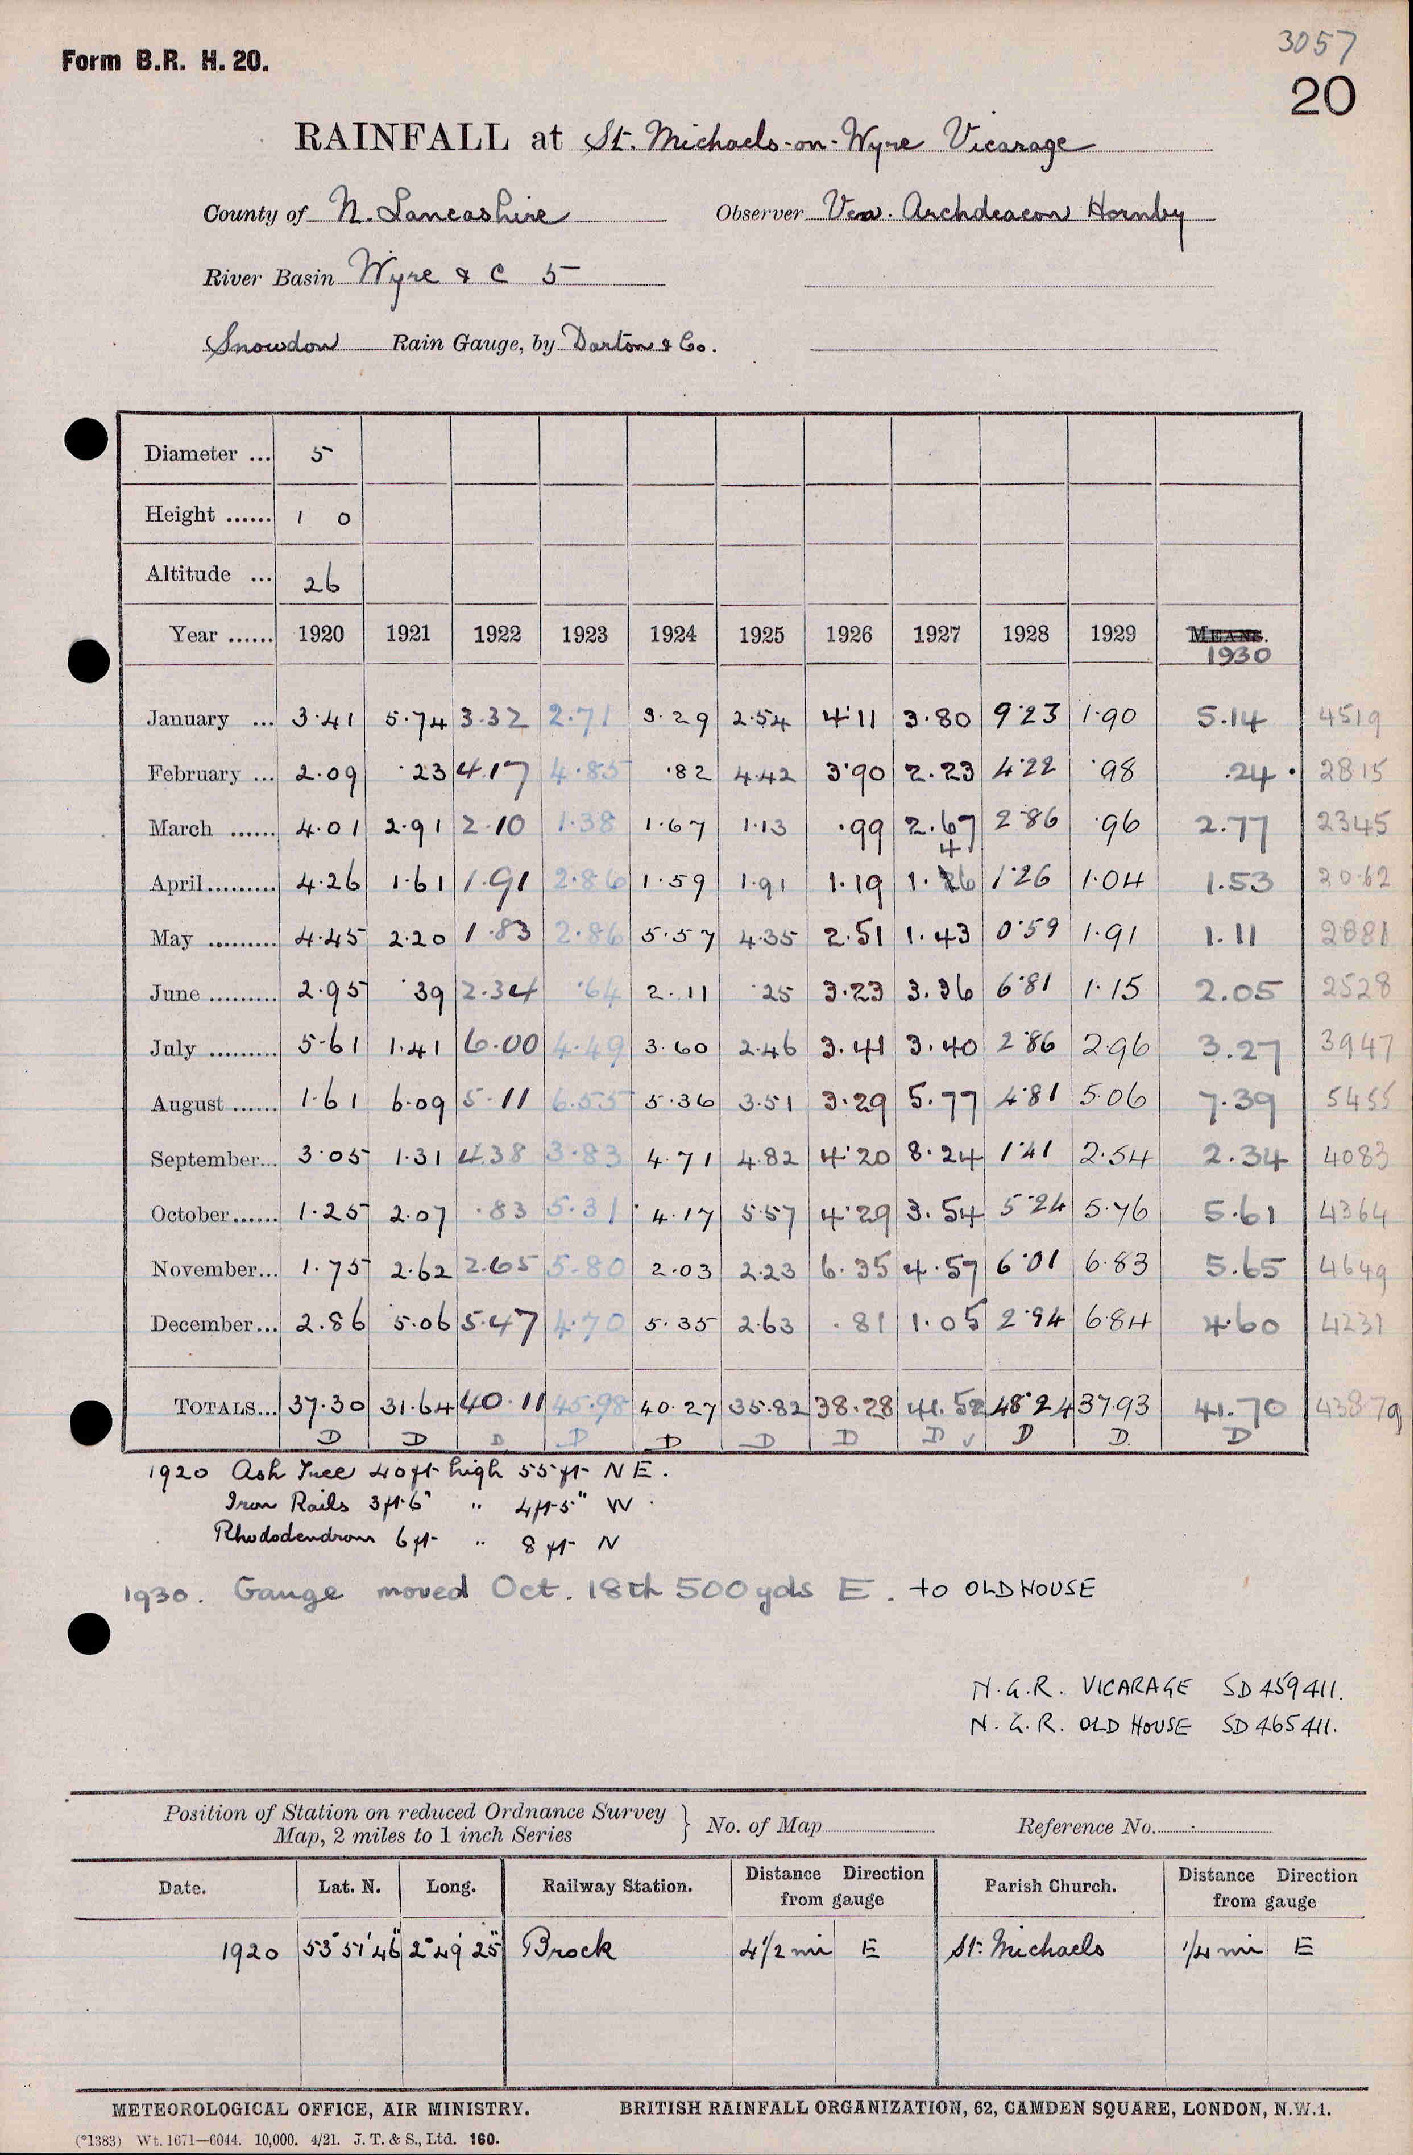 3057
Form B.R. H. 20.
20
RAINFALL at St. Michaels-on-Wyre Vicarage
County of N. Lancashire Observer Ven. Archdeacon Hornby
River Basin Wyre & C 5
Snowdon Rain Gauge, by Darton & Co.
Diameter ... 5
Height ...... 1 0
Altitude ... 26
Year ...... 1920 1921 1922 1923 1924 1925 1926 1927 1928 1929 MEANS.
1930
January ... 3.41 5.74 3.32 2.71 3.29 2.54 4.11 3.80 9.23 1.90 5.14 4519
February ... 2.09 .23 4.17 4.85 .82 4.42 3.90 2.23 4.22 .98 .24 . 2815
March ...... 4.01 2.91 2.10 1.38 1.67 1.13 .99 2.67 2.86 .96 2.77 2345
4
April......... 4.26 1.61 1.91 2.86 1.59 1.91 1.19 1.26 1.26 1.04 1.53 2062
May ......... 4.45 2.20 1.83 2.86 5.57 4.35 2.51 1.43 0.59 1.91 1.11 2881
June ......... 2.95 .39 2.34 .64 2.11 .25 3.23 3.36 6.81 1.15 2.05 2528
July ......... 5.61 1.41 6.00 4.49 3.60 2.46 3.41 3.40 2.86 2.96 3.27 3947
August ...... 1.61 6.09 5.11 6.55 5.36 3.51 3.29 5.77 4.81 5.06 7.39 5455
September... 3.05 1.31 4.38 3.83 4.71 4.82 4.20 8.24 1.41 2.54 2.34 4083
October...... 1.25 2.07 .83 5.31 4.17 5.57 4.29 3.54 5.24 5.76 5.61 4364
November... 1.75 2.62 2.65 5.80 2.03 2.23 6.35 4.57 6.01 6.83 5.65 4649
December... 2.86 5.06 5.47 4.70 5.35 2.63 .81 1.05 2.94 6.84 4.60 4231
TOTALS... 37.30 31.64 40.11 45.98 40.27 35.82 38.28 41.52 48.24 37.93 41.70 43879
D D D D D D D D ✓ D D. D
1920 Ash Tree 40 ft high 55 ft N E.
Iron Rails 3 ft 6" " 4 ft 5" W.
Rhododendrons 6 ft " 8 ft N
1930. Gauge moved Oct. 18th 500 yds E. to OLD HOUSE
N.G.R. VICARAGE SD 459 411.
N.G.R. OLD HOUSE SD 465 411.
Position of Station on reduced Ordnance Survey
Map, 2 miles to 1 inch Series } No. of Map Reference No.
Date. Lat. N. Long. Railway Station. Distance Direction from gauge Parish Church. Distance Direction from gauge
1920 53° 51' 46" 2° 49' 25" Brock 4 1/2 mi E St. Michaels 1/4 mi E
METEOROLOGICAL OFFICE, AIR MINISTRY. BRITISH RAINFALL ORGANIZATION, 62, CAMDEN SQUARE, LONDON, N.W.1.
(*1383) Wt. 1671—6044. 10,000. 4/21. J. T. & S., Ltd. 160.